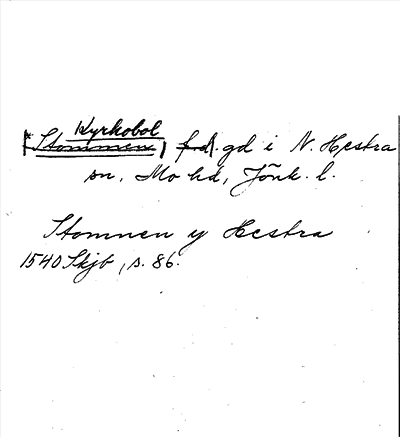 Kyrkobol
[*Stommen] f.d. gd i N. Hestra
sn, Mo hd, Jönk. l.
Stomnen y Hestra
1540 Skjb, s. 86.